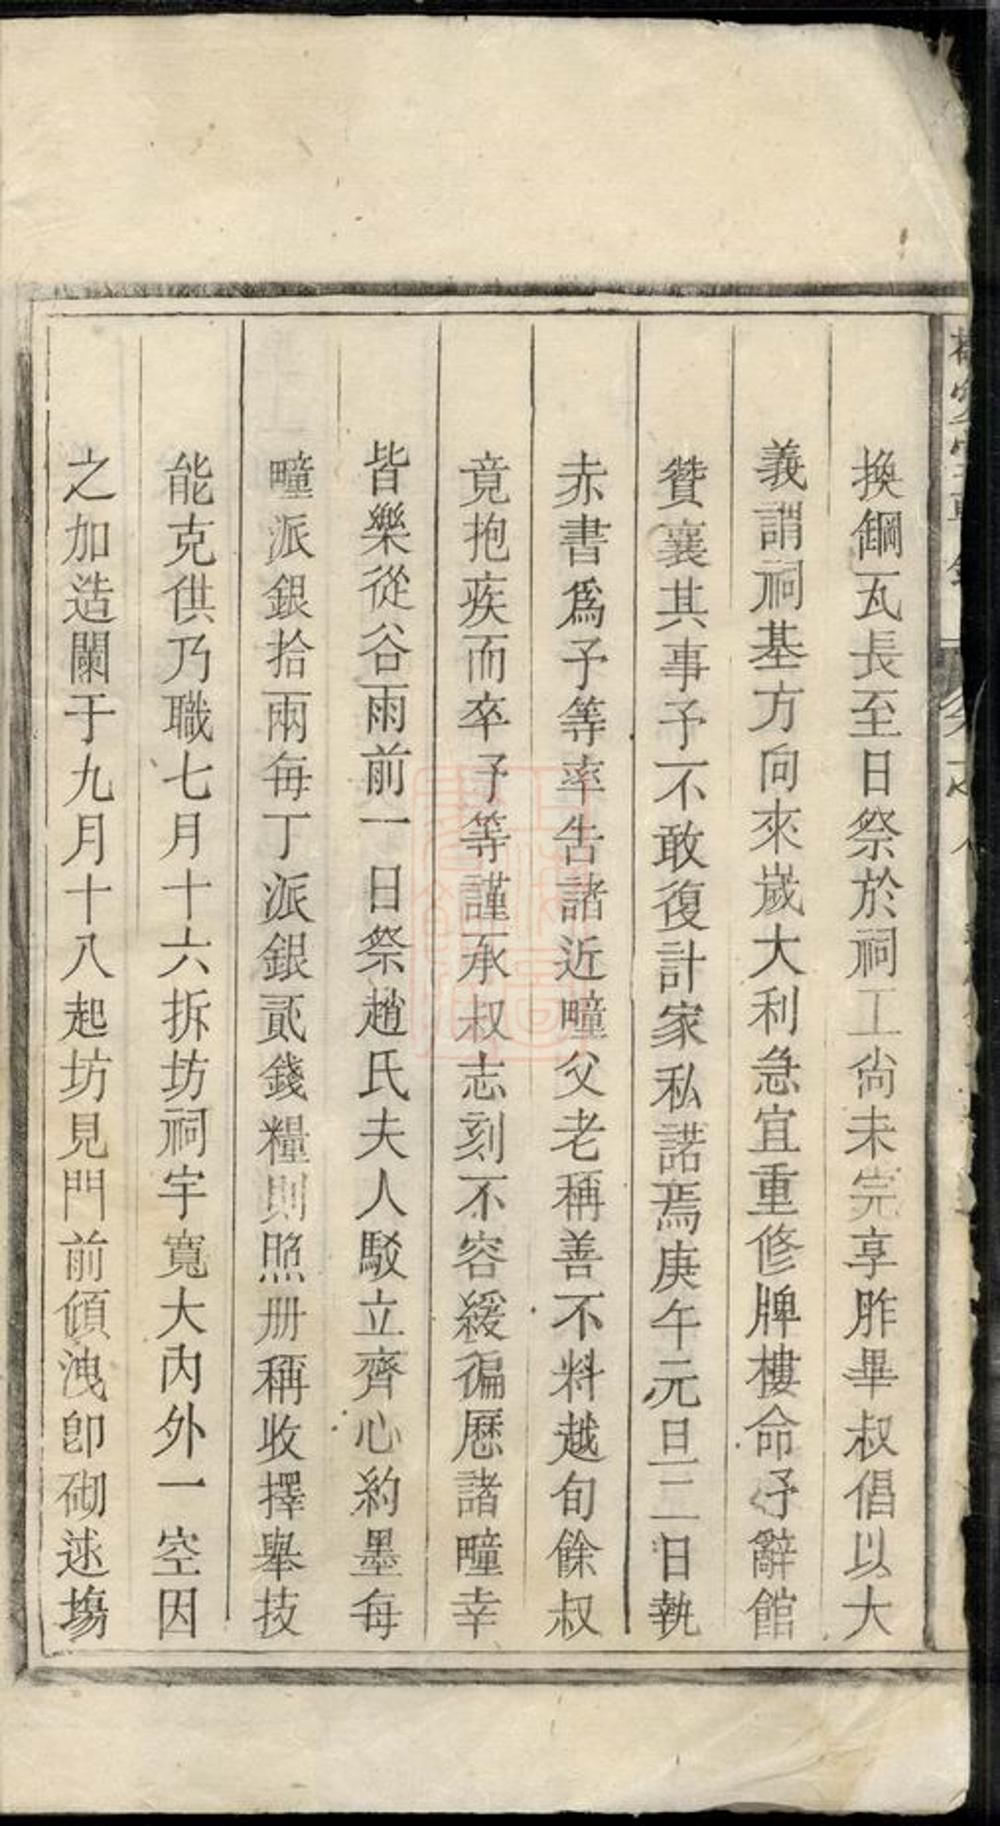 換鋼瓦長至日祭於祠工尙未完享胙畢叔倡以大
義謂祠基方向來嵗大利急宜重修牌樓命予辭館
贊襄其事予不敢復計家私諾焉庚午元旦二日執
赤書爲予等率告諸近疃父老稱善不料越旬餘叔
竟抱疾而卒予等謹承叔志刻不容緩徧歷諸疃幸
皆樂從谷雨前一日祭趙氏夫人駁立齊心約墨每
疃派銀拾兩每丁派銀貳錢糧則照册稱收擇舉技
能克供乃職七月十六拆坊祠宇寬大內外一空因
之加造闌于九月十八起坊見門前傾洩卽砌逑塲